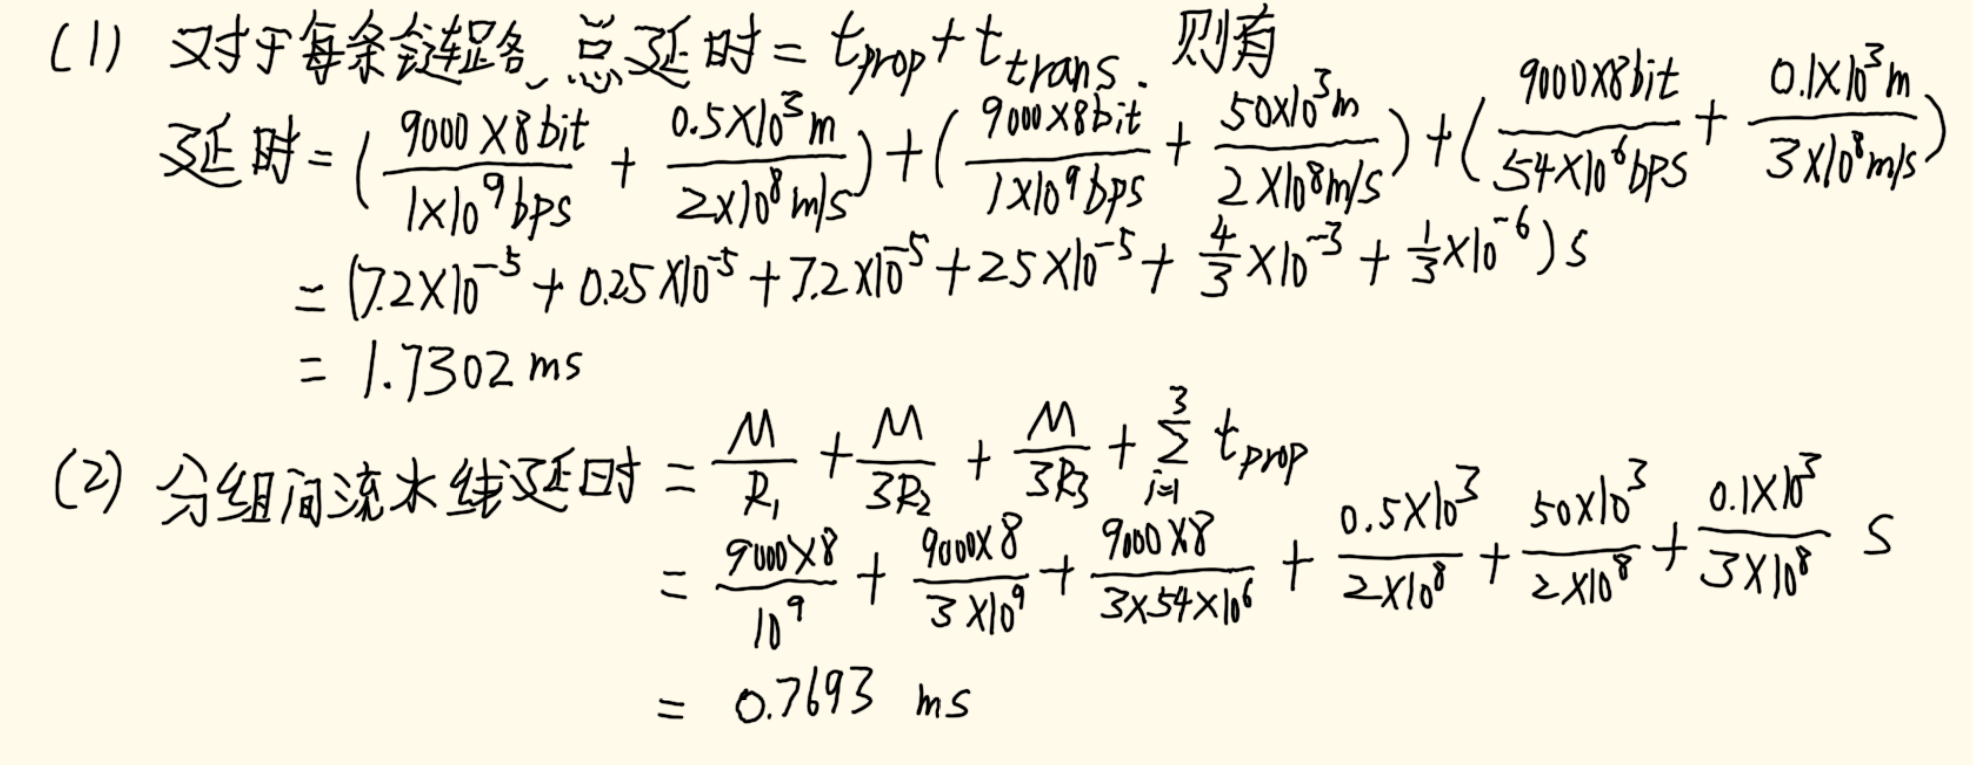 (1) 对于每条链路、总延时 = t_prop + t_trans. 则有
延时 = (9000×8bit / 1×10^9bps + 0.5×10^3m / 2×10^8m/s) + (9000×8bit / 1×10^9bps + 50×10^3m / 2×10^8m/s) + (9000×8bit / 54×10^6bps + 0.1×10^3m / 3×10^8m/s)
= (7.2×10^-5 + 0.25×10^-5 + 7.2×10^-5 + 25×10^-5 + 4/3×10^-3 + 1/3×10^-6) s
= 1.7302 ms
(2) 分组间流水线延时 = M/R_1 + M/3R_2 + M/3R_3 + Σ_{i=1}^{3} t_prop
= 9000×8 / 10^9 + 9000×8 / 3×10^9 + 9000×8 / 3×54×10^6 + 0.5×10^3 / 2×10^8 + 50×10^3 / 2×10^8 + 0.1×10^3 / 3×10^8 s
= 0.7693 ms